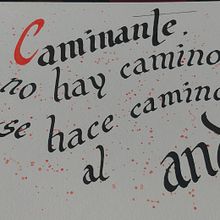 Caminante.
no hay camino
se hace camino
al and